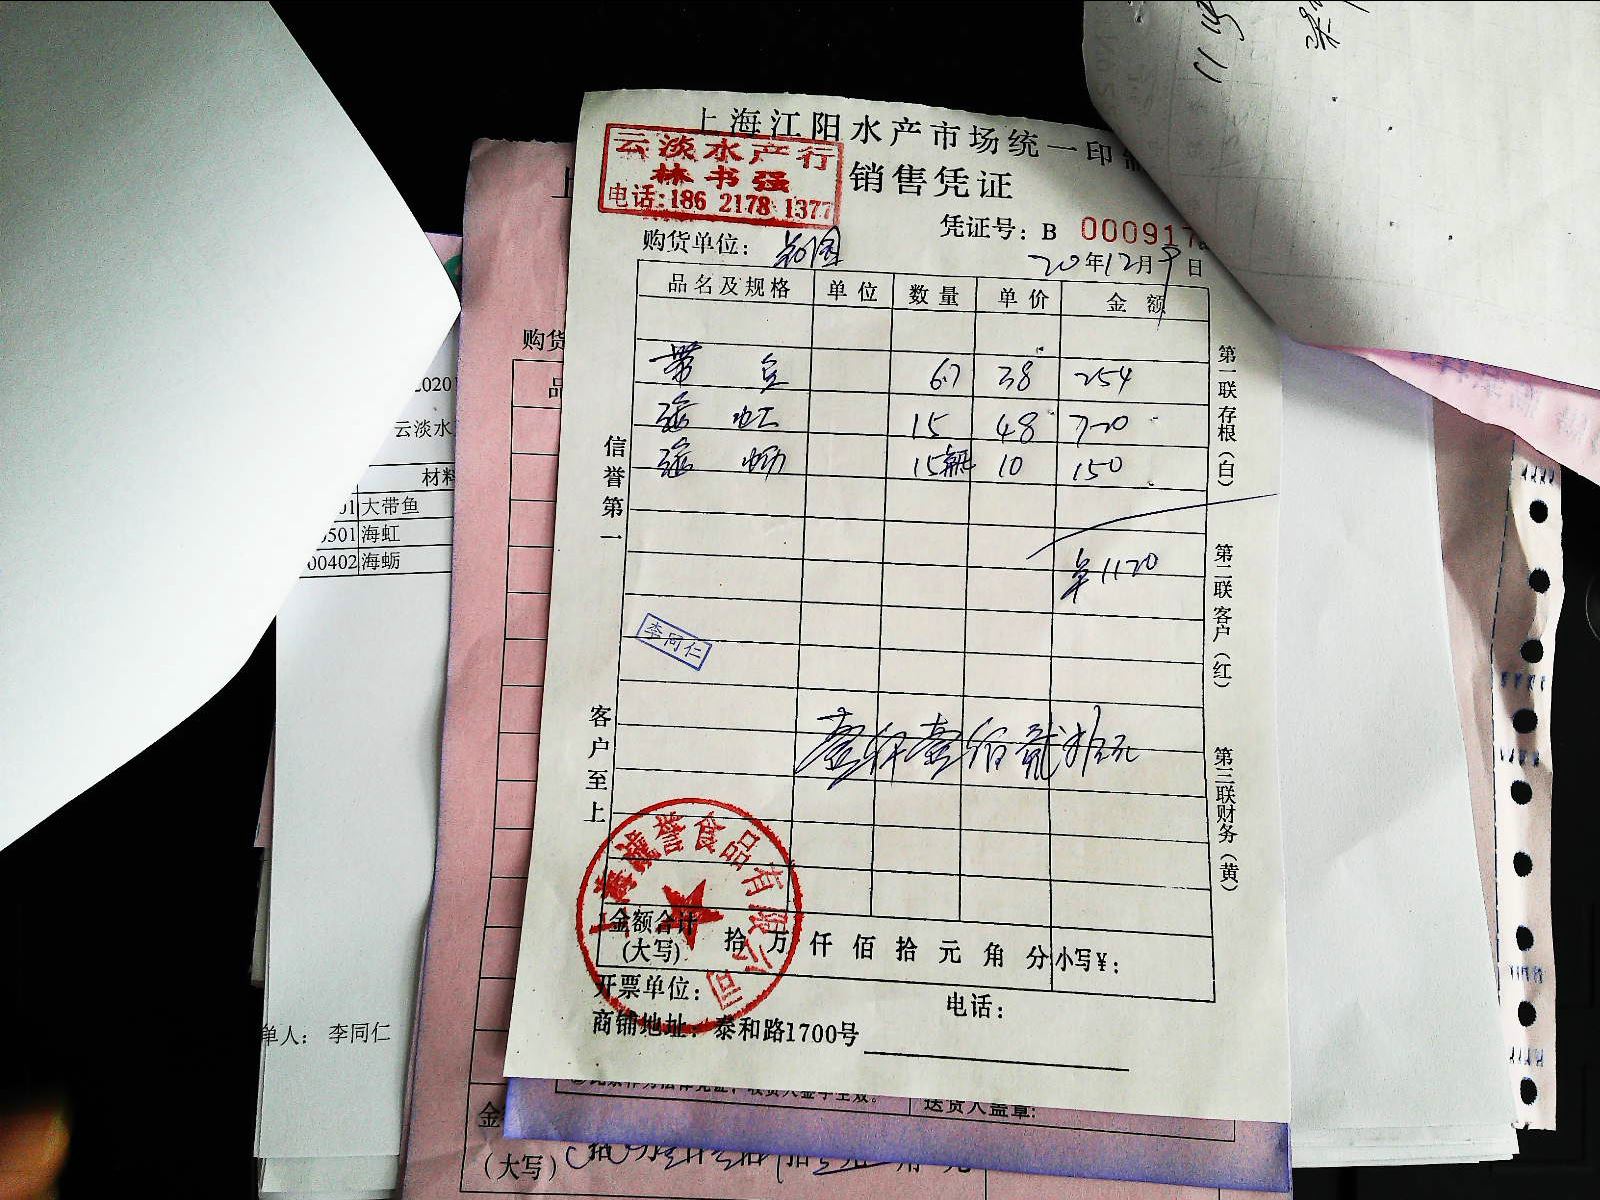 上海江阳水产市场统一印
云淡水产行
林书强
电话:186 2178 1377
销售凭证
凭证号: B 000917
购货单位:
20年12月9日
品名及规格 单位 数量 单价 金额
带 6.7 38 254
海虹 15 48 720
海蛎 15 10 150
¥1120
信誉第一
客户至上
李同仁
壹仟壹佰贰拾元
第一联存根(白)
第二联客户(红)
第三联财务(黄)
上海诚誉食品有限公司
金额合计(大写) 拾 万 仟 佰 拾 元 角 分 小写¥:
开票单位: 电话:
商铺地址: 泰和路1700号
购货
品
2020
云淡水
材料
01 大带鱼
501 海虹
00402 海蛎
单人: 李同仁
送货人盖章:
金
(大写)